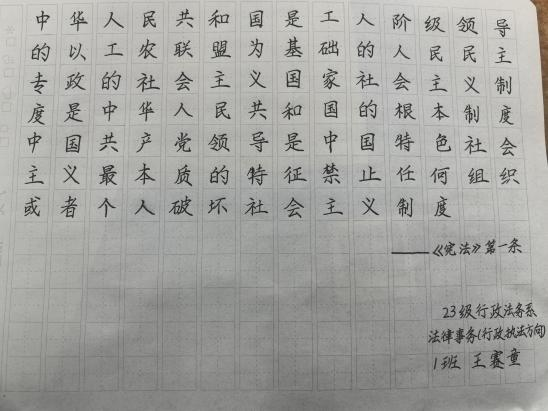 中华人民共和国是工人阶级领导
的以工农联盟为基础的人民民主
专政的社会主义国家社会主义制
度是中华人民共和国的根本制度
中国共产党领导是中国特色社会
主义最本质的特征禁止任何组织
或者个人破坏社会主义制度
——《宪法》第一条
23级行政法务系
法律事务(行政执法方向)
1班 王赛童